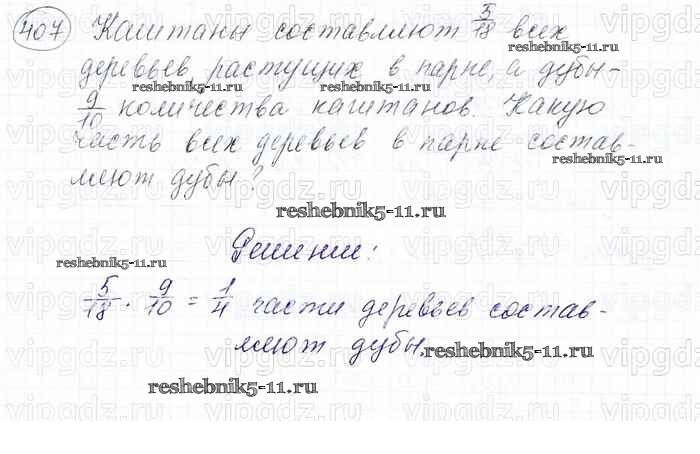 407 Каштаны составляют 5/18 всех
деревьев, растущих в парке, а дубы –
9/10 количества каштанов. Какую
часть всех деревьев в парке состав-
ляют дубы?
Решение:
5/18 · 9/10 = 1/4 части деревьев состав-
ляют дубы.
reshebnik5-11.ru
reshebnik5-11.ru
reshebnik5-11.ru
reshebnik5-11.ru
reshebnik5-11.ru
reshebnik5-11.ru
reshebnik5-11.ru
reshebnik5-11.ru
vipgdz.ru